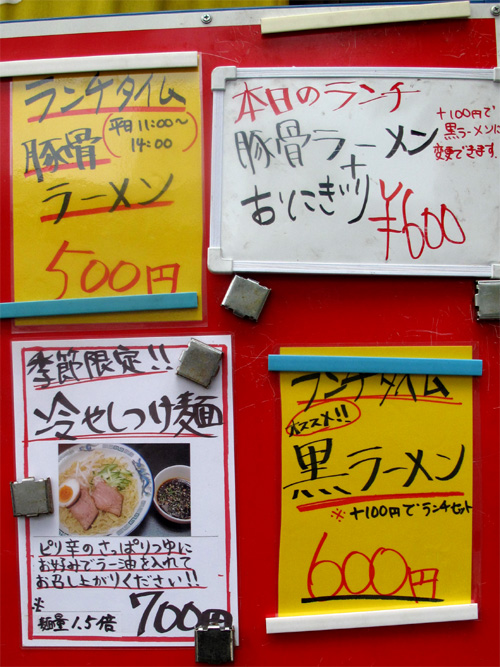 ランチタイム
豚骨
(平日11:00〜
14:00)
ラーメン
500円
本日のランチ
豚骨ラーメン
+
おにぎり
¥600
+100円で
黒ラーメンに
変更できます
季節限定!!
冷やしつけ麺
ピリ辛のさっぱりつゆに
お好みでラー油を入れて
お召し上がりください!!
※
麺量1.5倍
700円
ランチタイム
オススメ!!
黒ラーメン
※+100円でランチセット
600円